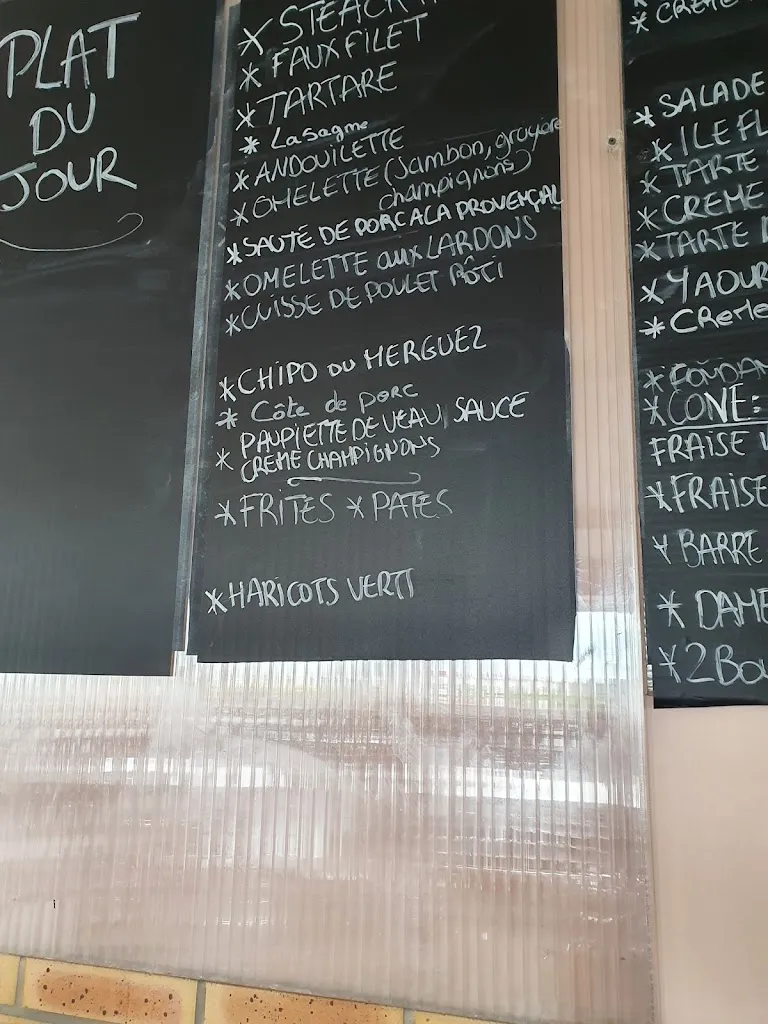 PLAT
DU
JOUR
* STEACK
* FAUX FILET
* TARTARE
* Lasagne
* ANDOUILETTE
* OMELETTE (Jambon, gruyère
champignons)
* SAUTÉ DE PORC A LA PROVENÇAL
* OMELETTE aux LARDONS
* CUISSE DE POULET RÔTI
* CHIPO OU MERGUEZ
* Côte de porc
* PAUPIETTE DE VEAU SAUCE
CREME CHAMPIGNONS
* FRITES * PATES
* HARICOTS VERTS
* CREME
* SALADE
* ILE FL
* TARTE
* CREME
* TARTE
* YAOUR
* CREME
* FONDAN
* CONE:
FRAISE
* FRAISE
* BARRE
* DAME
* 2 BOU